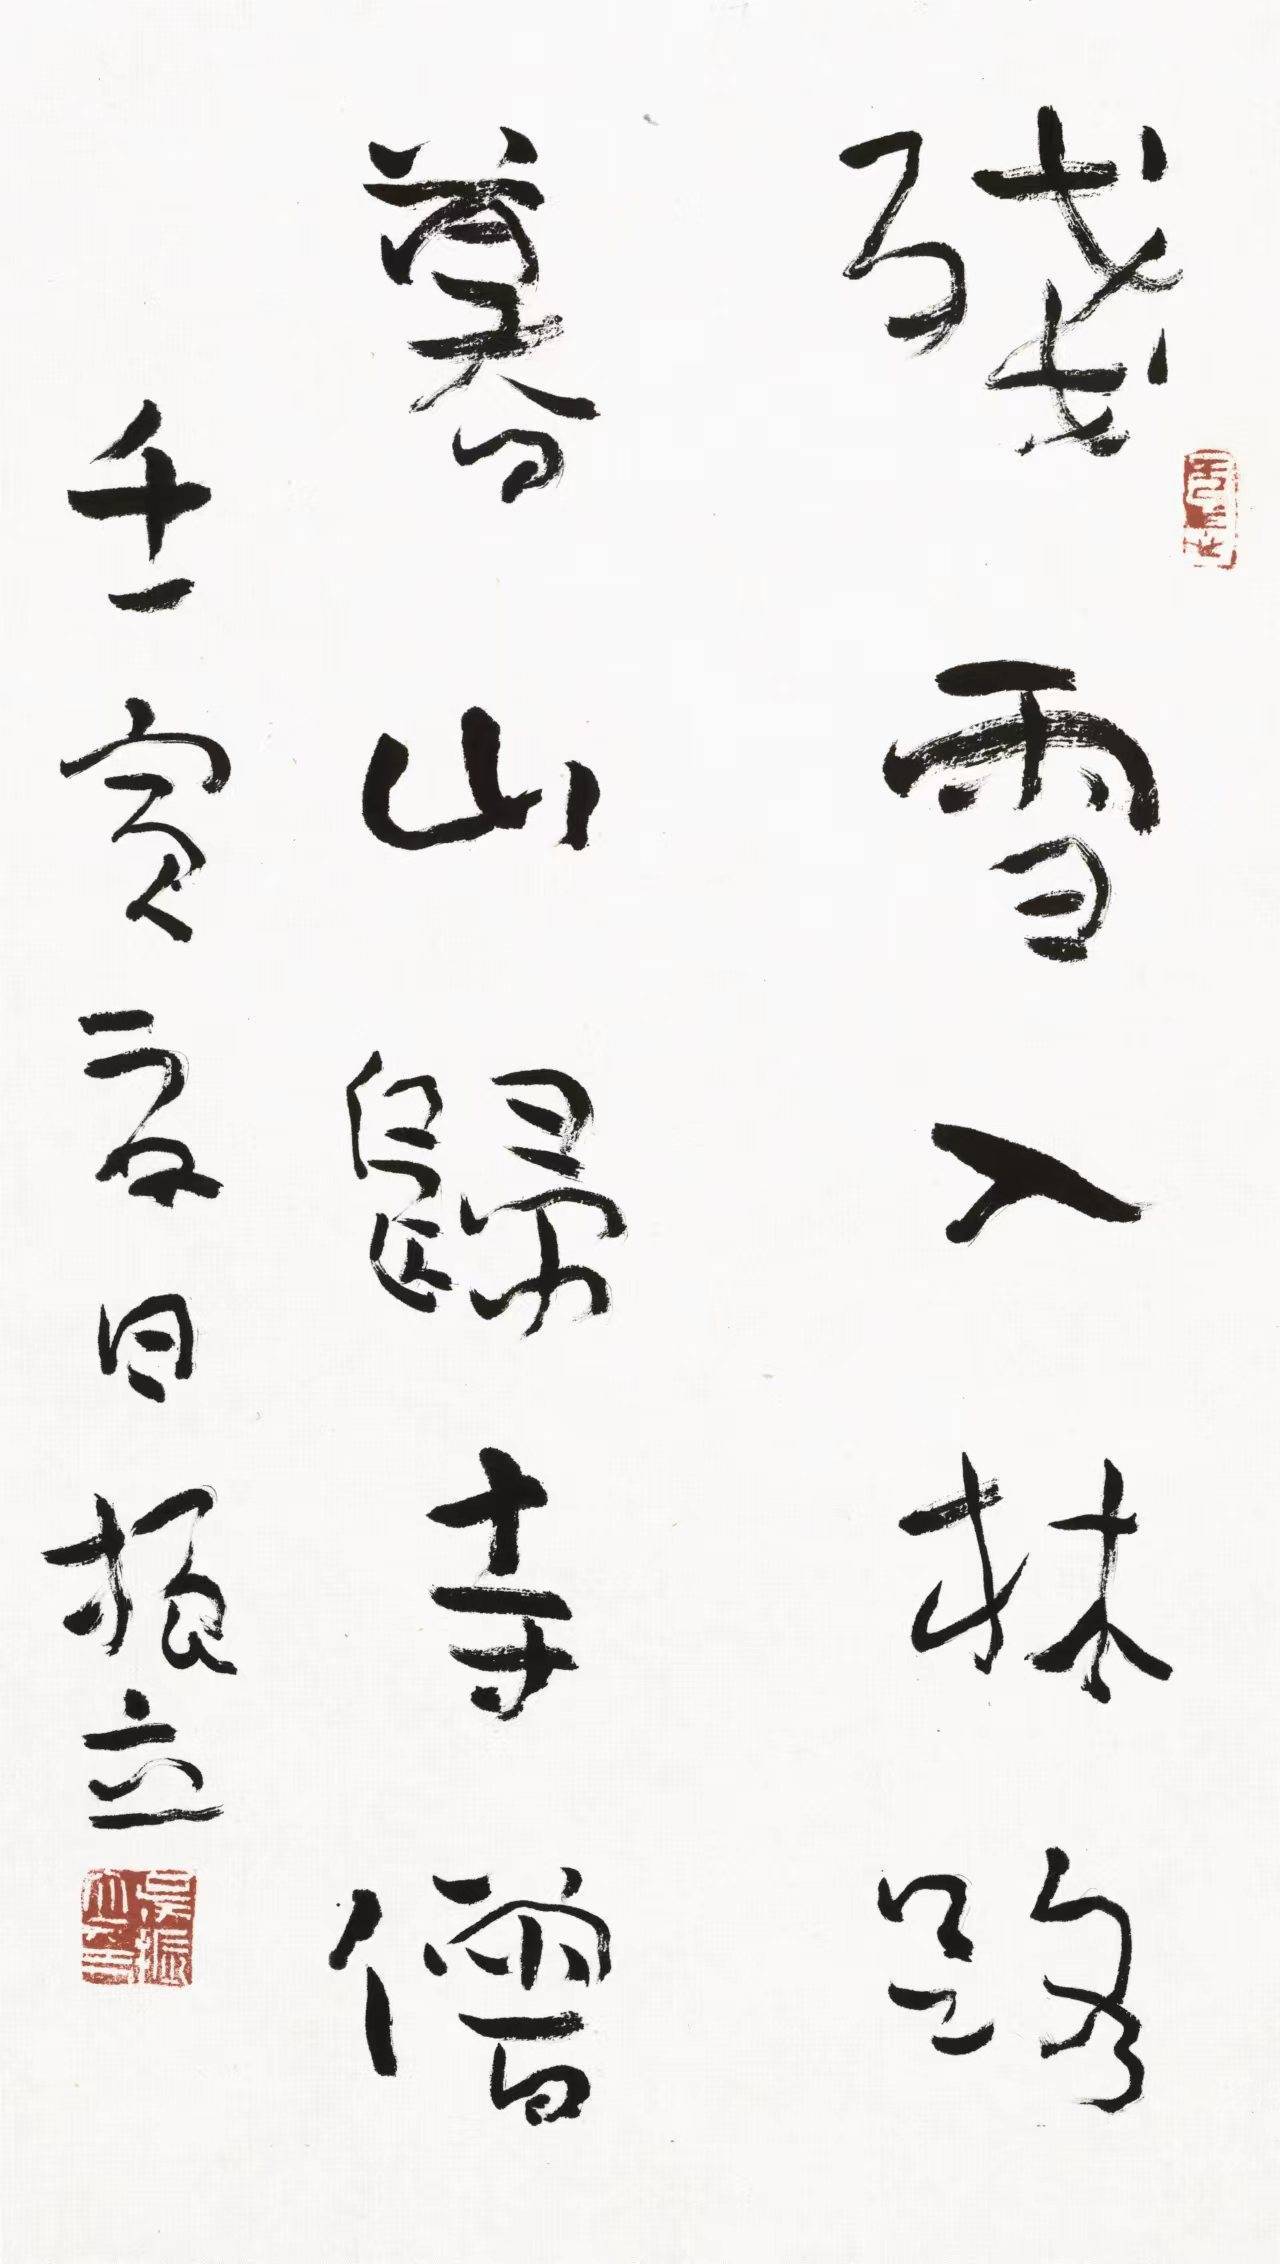 殘雪入林路
暮山歸寺僧
壬寅夏日振立
吳振立印